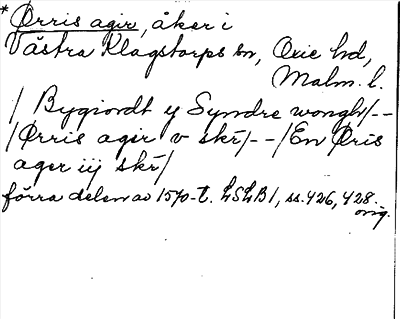 * Ørris agir, åker i
Västra Klagstorps sn, Oxie hd,
Malm. l.
/ Bygiordt y Syndre wongh/--
/Ørris agir v skr/--/En Øris
ager iij skr/
förra delen av 1570-t. LSLB 1, ss. 426, 428.
orig.